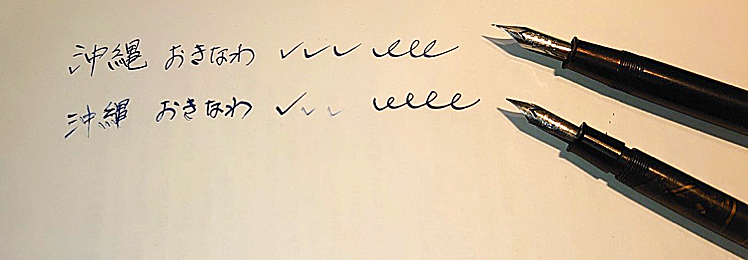 沖縄 おきなわ ✓✓✓ lll
沖縄 おきなわ ✓✓✓ llll